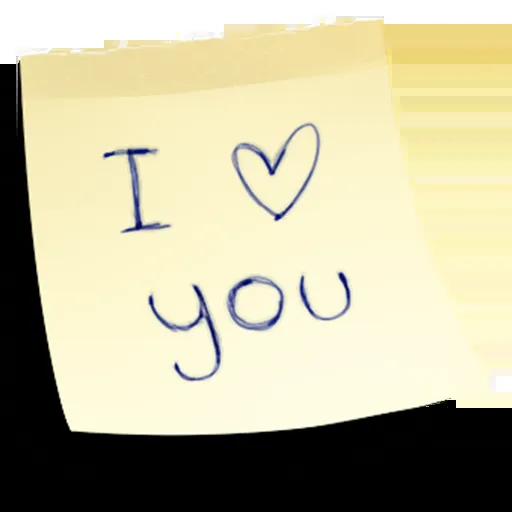 I ♡
you